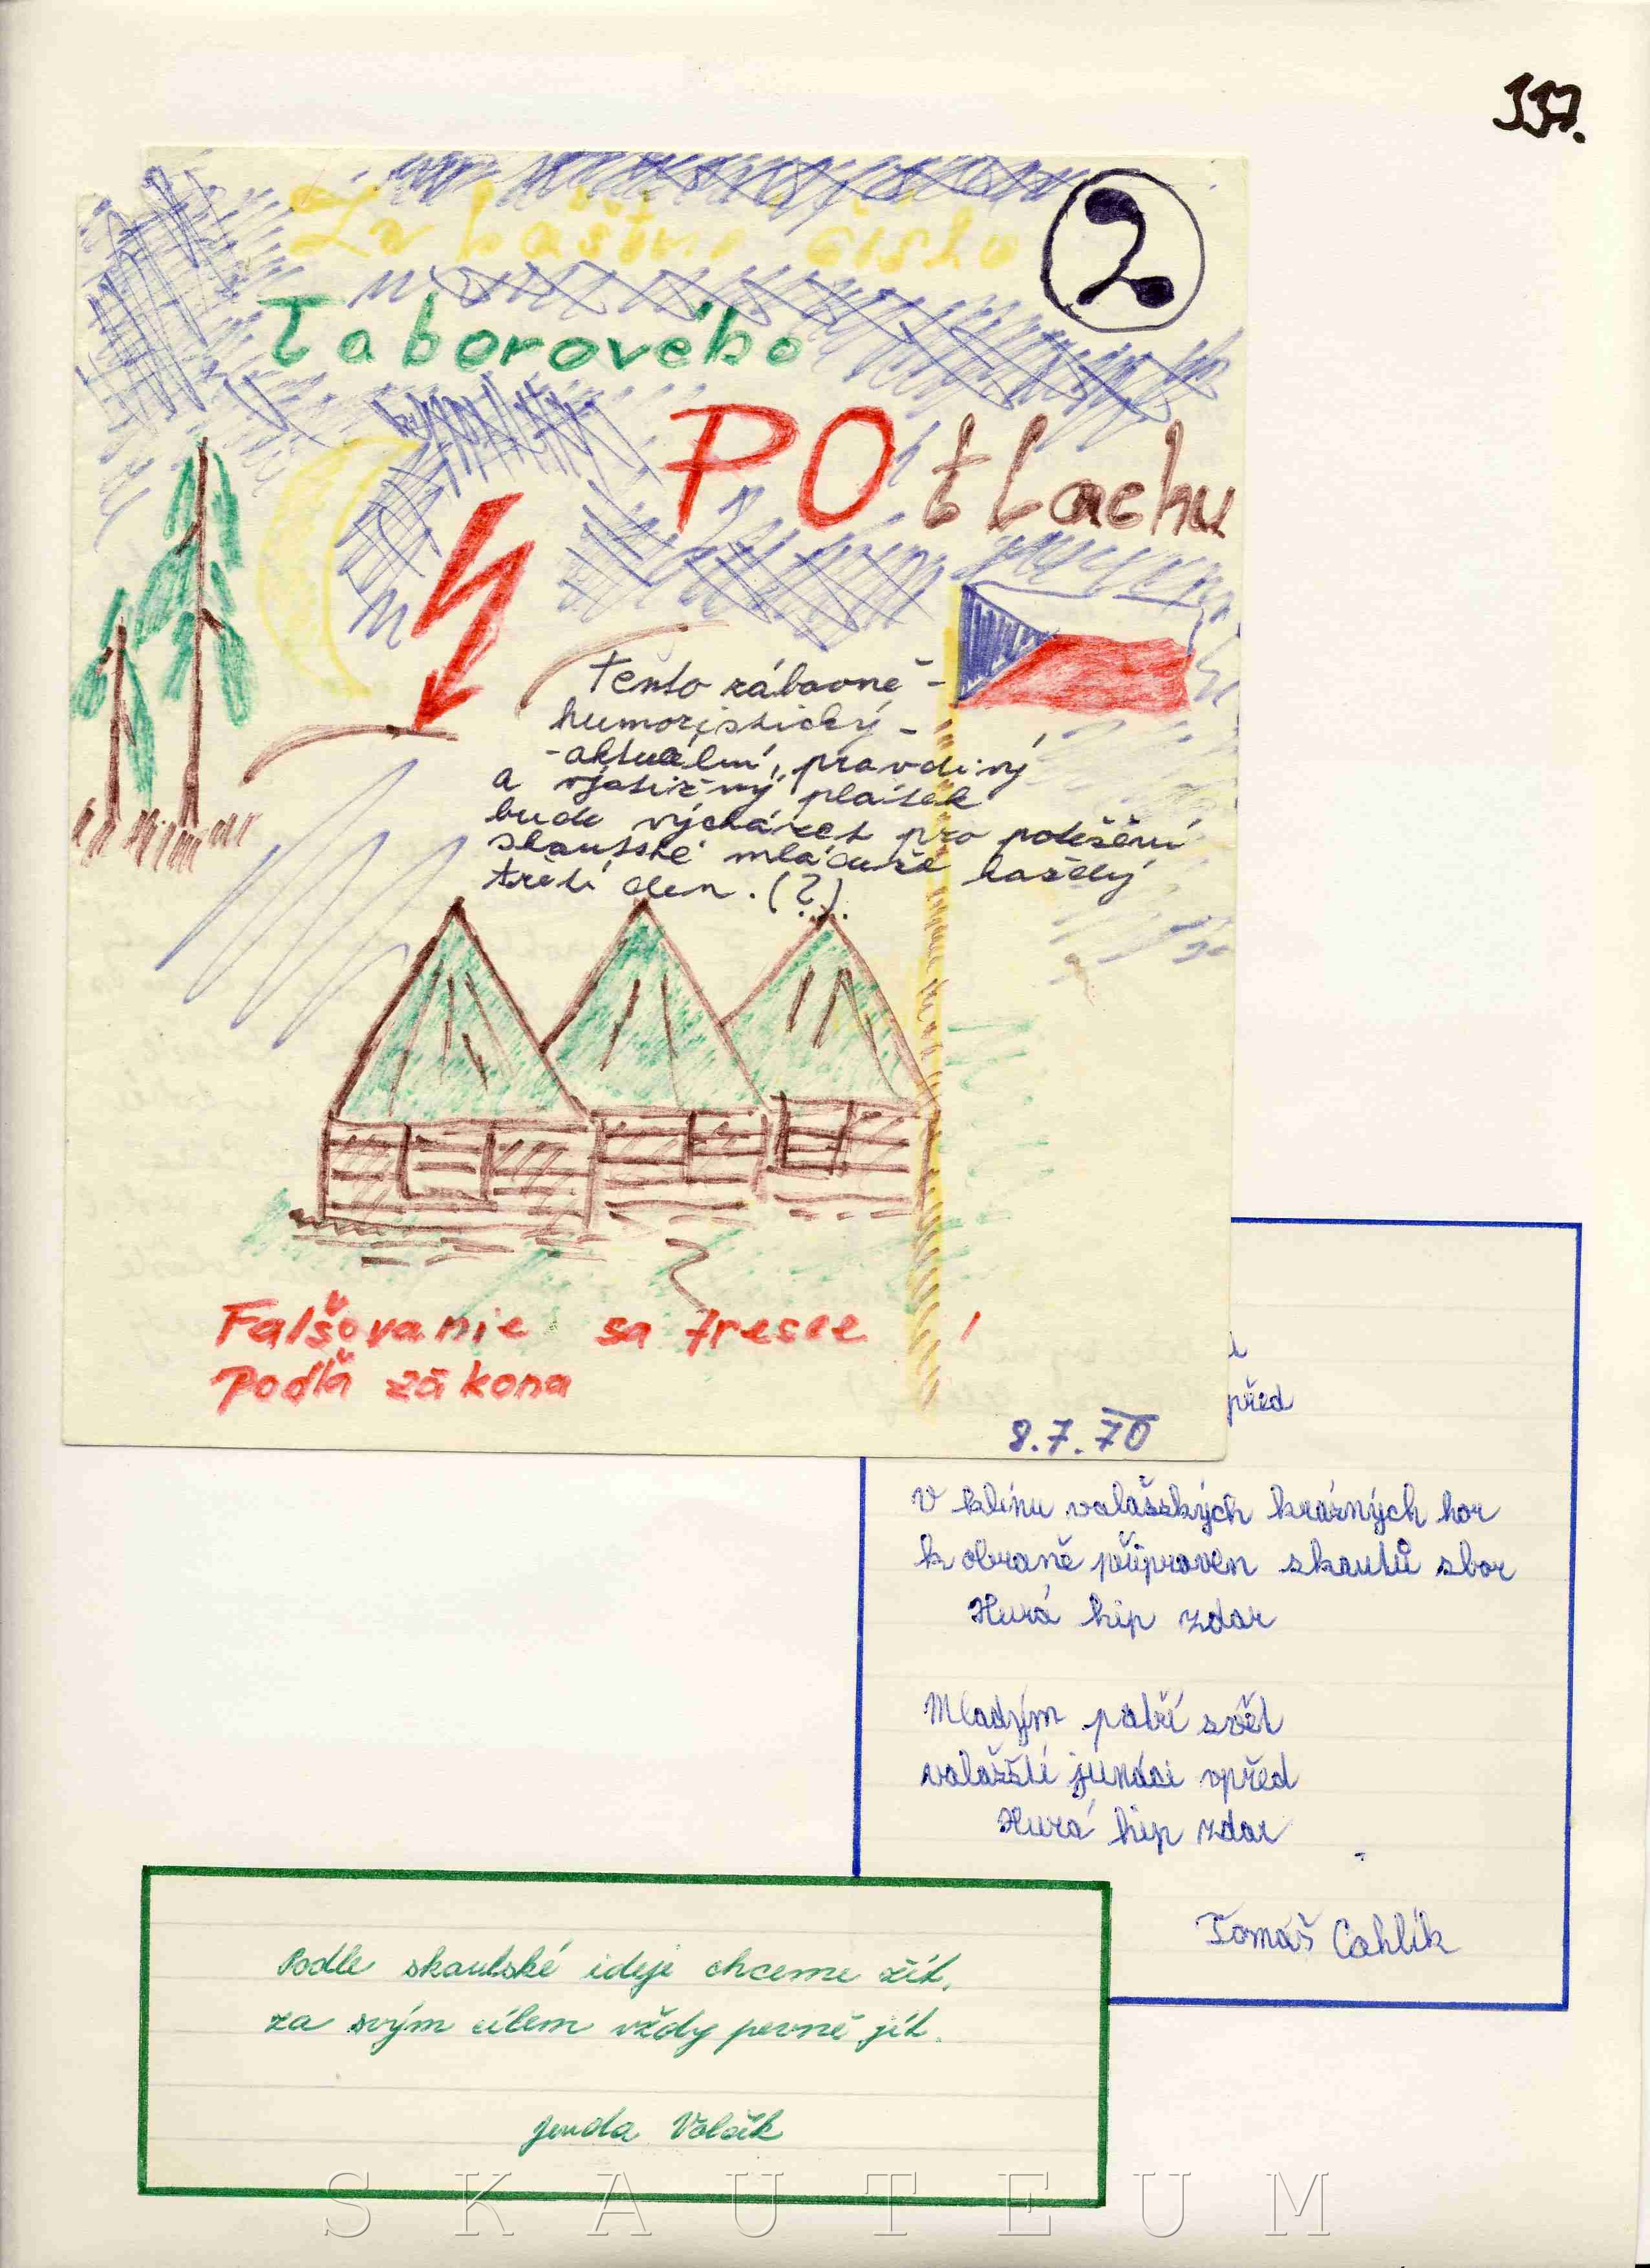 337.
Zvláštní číslo
2
Táborového
POtlachu
Tento zábavně-
humoristický-
-aktuální, pravdivý
a vjátižný plátek
bude vycházet pro potěšení
skautské mládeže každý
třetí den. (?).
Falšovanie sa tresce !
Podlă zákona
8.7.70
před
V klínu valašských krásných hor
k obraně připraven skautů sbor
Hurá hip zdar
Mladým patří svět
valašští junáci vpřed
Hurá hip zdar
Tomáš Cahlík
Podle skautské ideje chceme žít,
za svým cílem vždy pevně jít.
Jenda Volčík
SKAUTEUM